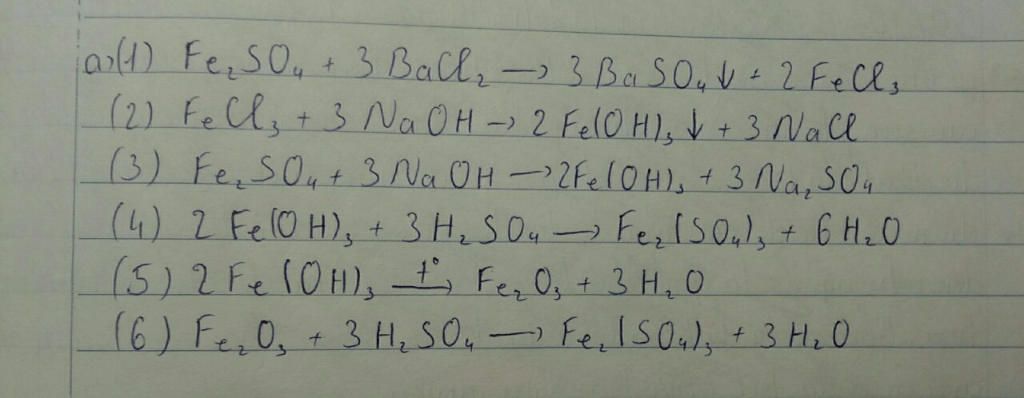 a) (1) Fe₂SO₄ + 3 BaCl₂ → 3 BaSO₄↓ + 2 FeCl₃
(2) FeCl₃ + 3 NaOH → 2 Fe(OH)₃↓ + 3 NaCl
(3) Fe₂SO₄ + 3 NaOH → 2Fe(OH)₃ + 3 Na₂SO₄
(4) 2 Fe(OH)₃ + 3 H₂SO₄ → Fe₂(SO₄)₃ + 6 H₂O
(5) 2 Fe(OH)₃ t°→ Fe₂O₃ + 3 H₂O
(6) Fe₂O₃ + 3 H₂SO₄ → Fe₂(SO₄)₃ + 3 H₂O